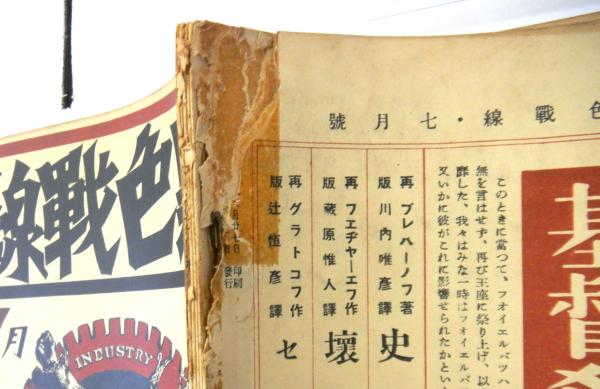 色戰線・七月號
基督
このときに當つて、フオイエルバツハ
無を言はせず、再び王座に祭り上げ、以
靡した、我々はみな一時はフオイエルバ
又いかに彼がこれに影響せられたかとい
プレハーノフ著
川内唯彦譯
再版
史
フエヂヤーエフ作
藏原惟人譯
再版
壞
グラトコフ作
辻恒彦譯
再版
セ
月廿七日印刷
發行
色戰線
月
INDUSTRY